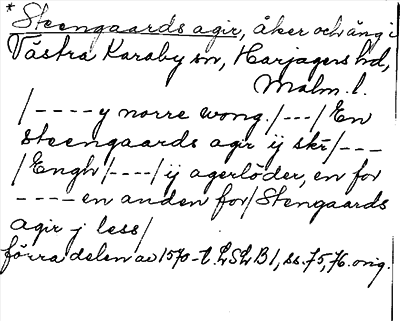 * Steengaards agir, åker och äng i
Västra Karaby sn, Harjagers hd,
Malm. l.
/----y norre wong./---/En
steengaards agir ij skr/---
/Engh/----/ij agerlöder, en for
----en anden for/Stengaards
agir j less/
förra delen av 1570-t. LSLB1, ss. 75, 76. orig.